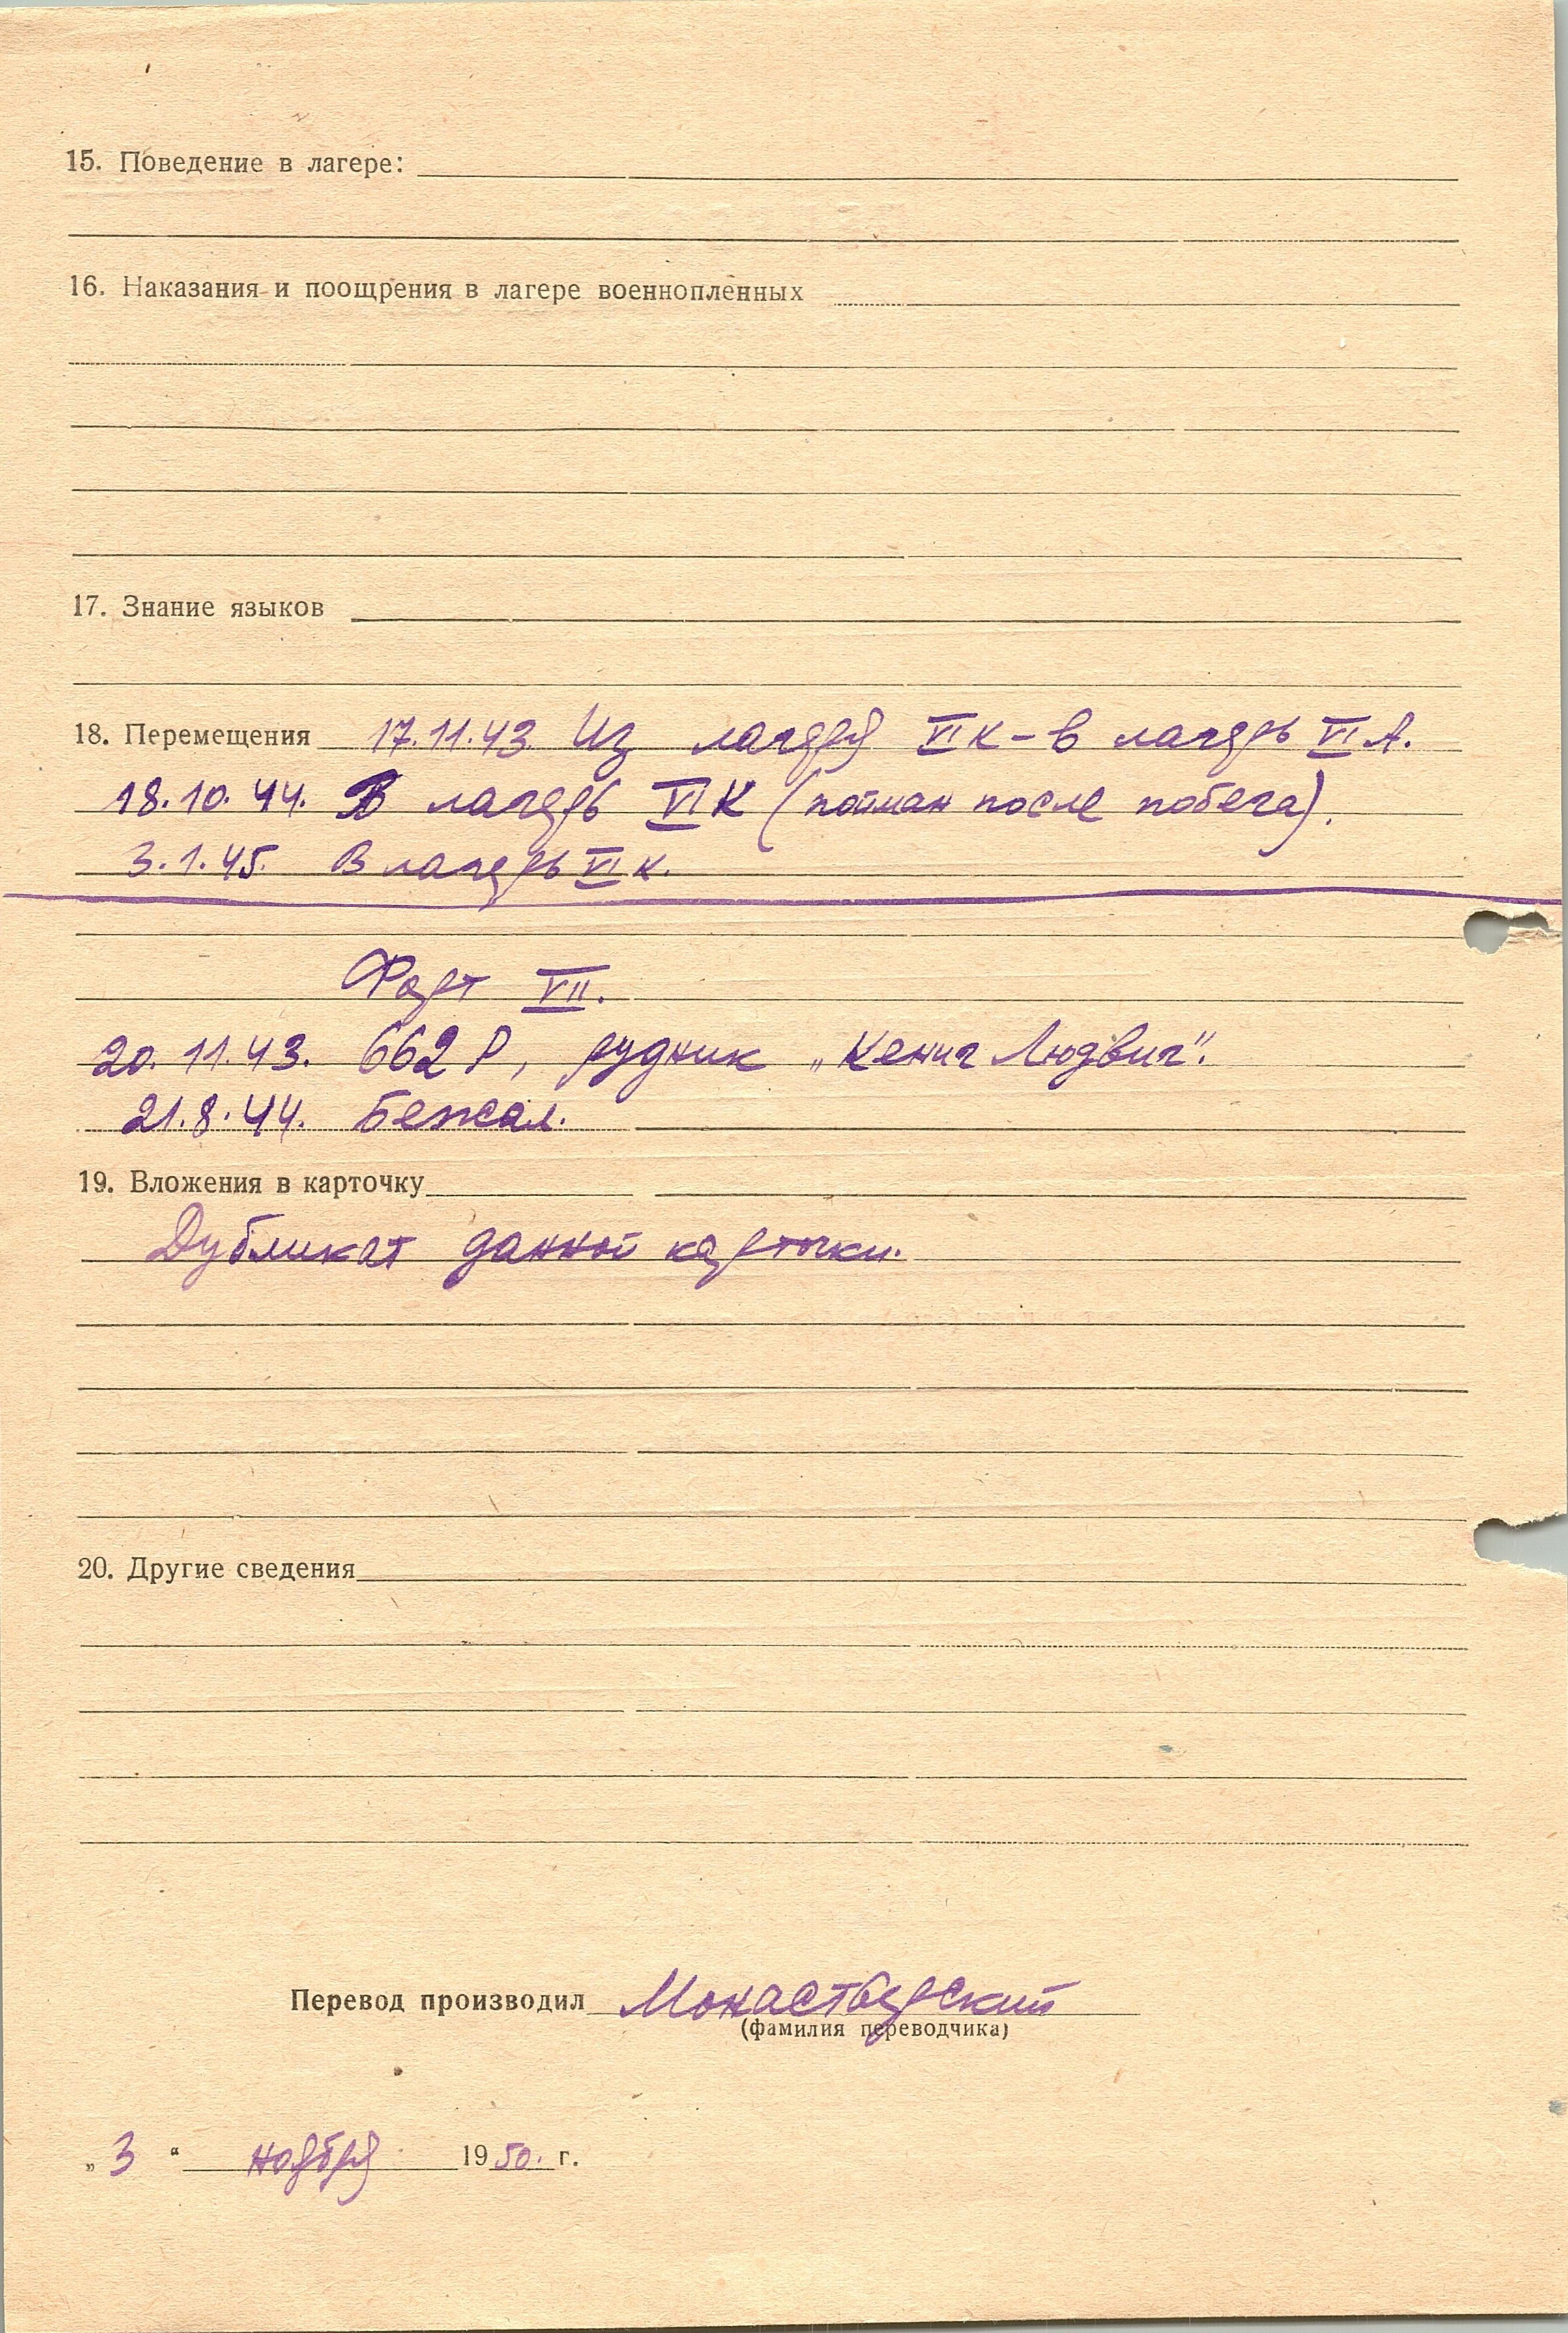 15. Поведение в лагере:
16. Наказания и поощрения в лагере военнопленных
17. Знание языков
18. Перемещения 17.11.43. Из лагеря VI К – в лагерь VI А.
18.10.44. В лагерь VI К (пойман после побега).
3.1.45. В лагерь VI К.
Форт VII.
20.11.43. 662 Р, рудник „Кениг Людвиг".
21.8.44. Бежал.
19. Вложения в карточку
Дубликат данной карточки.
20. Другие сведения
Перевод производил Монастверский
(фамилия переводчика)
„ 3 " ноября 1950. г.